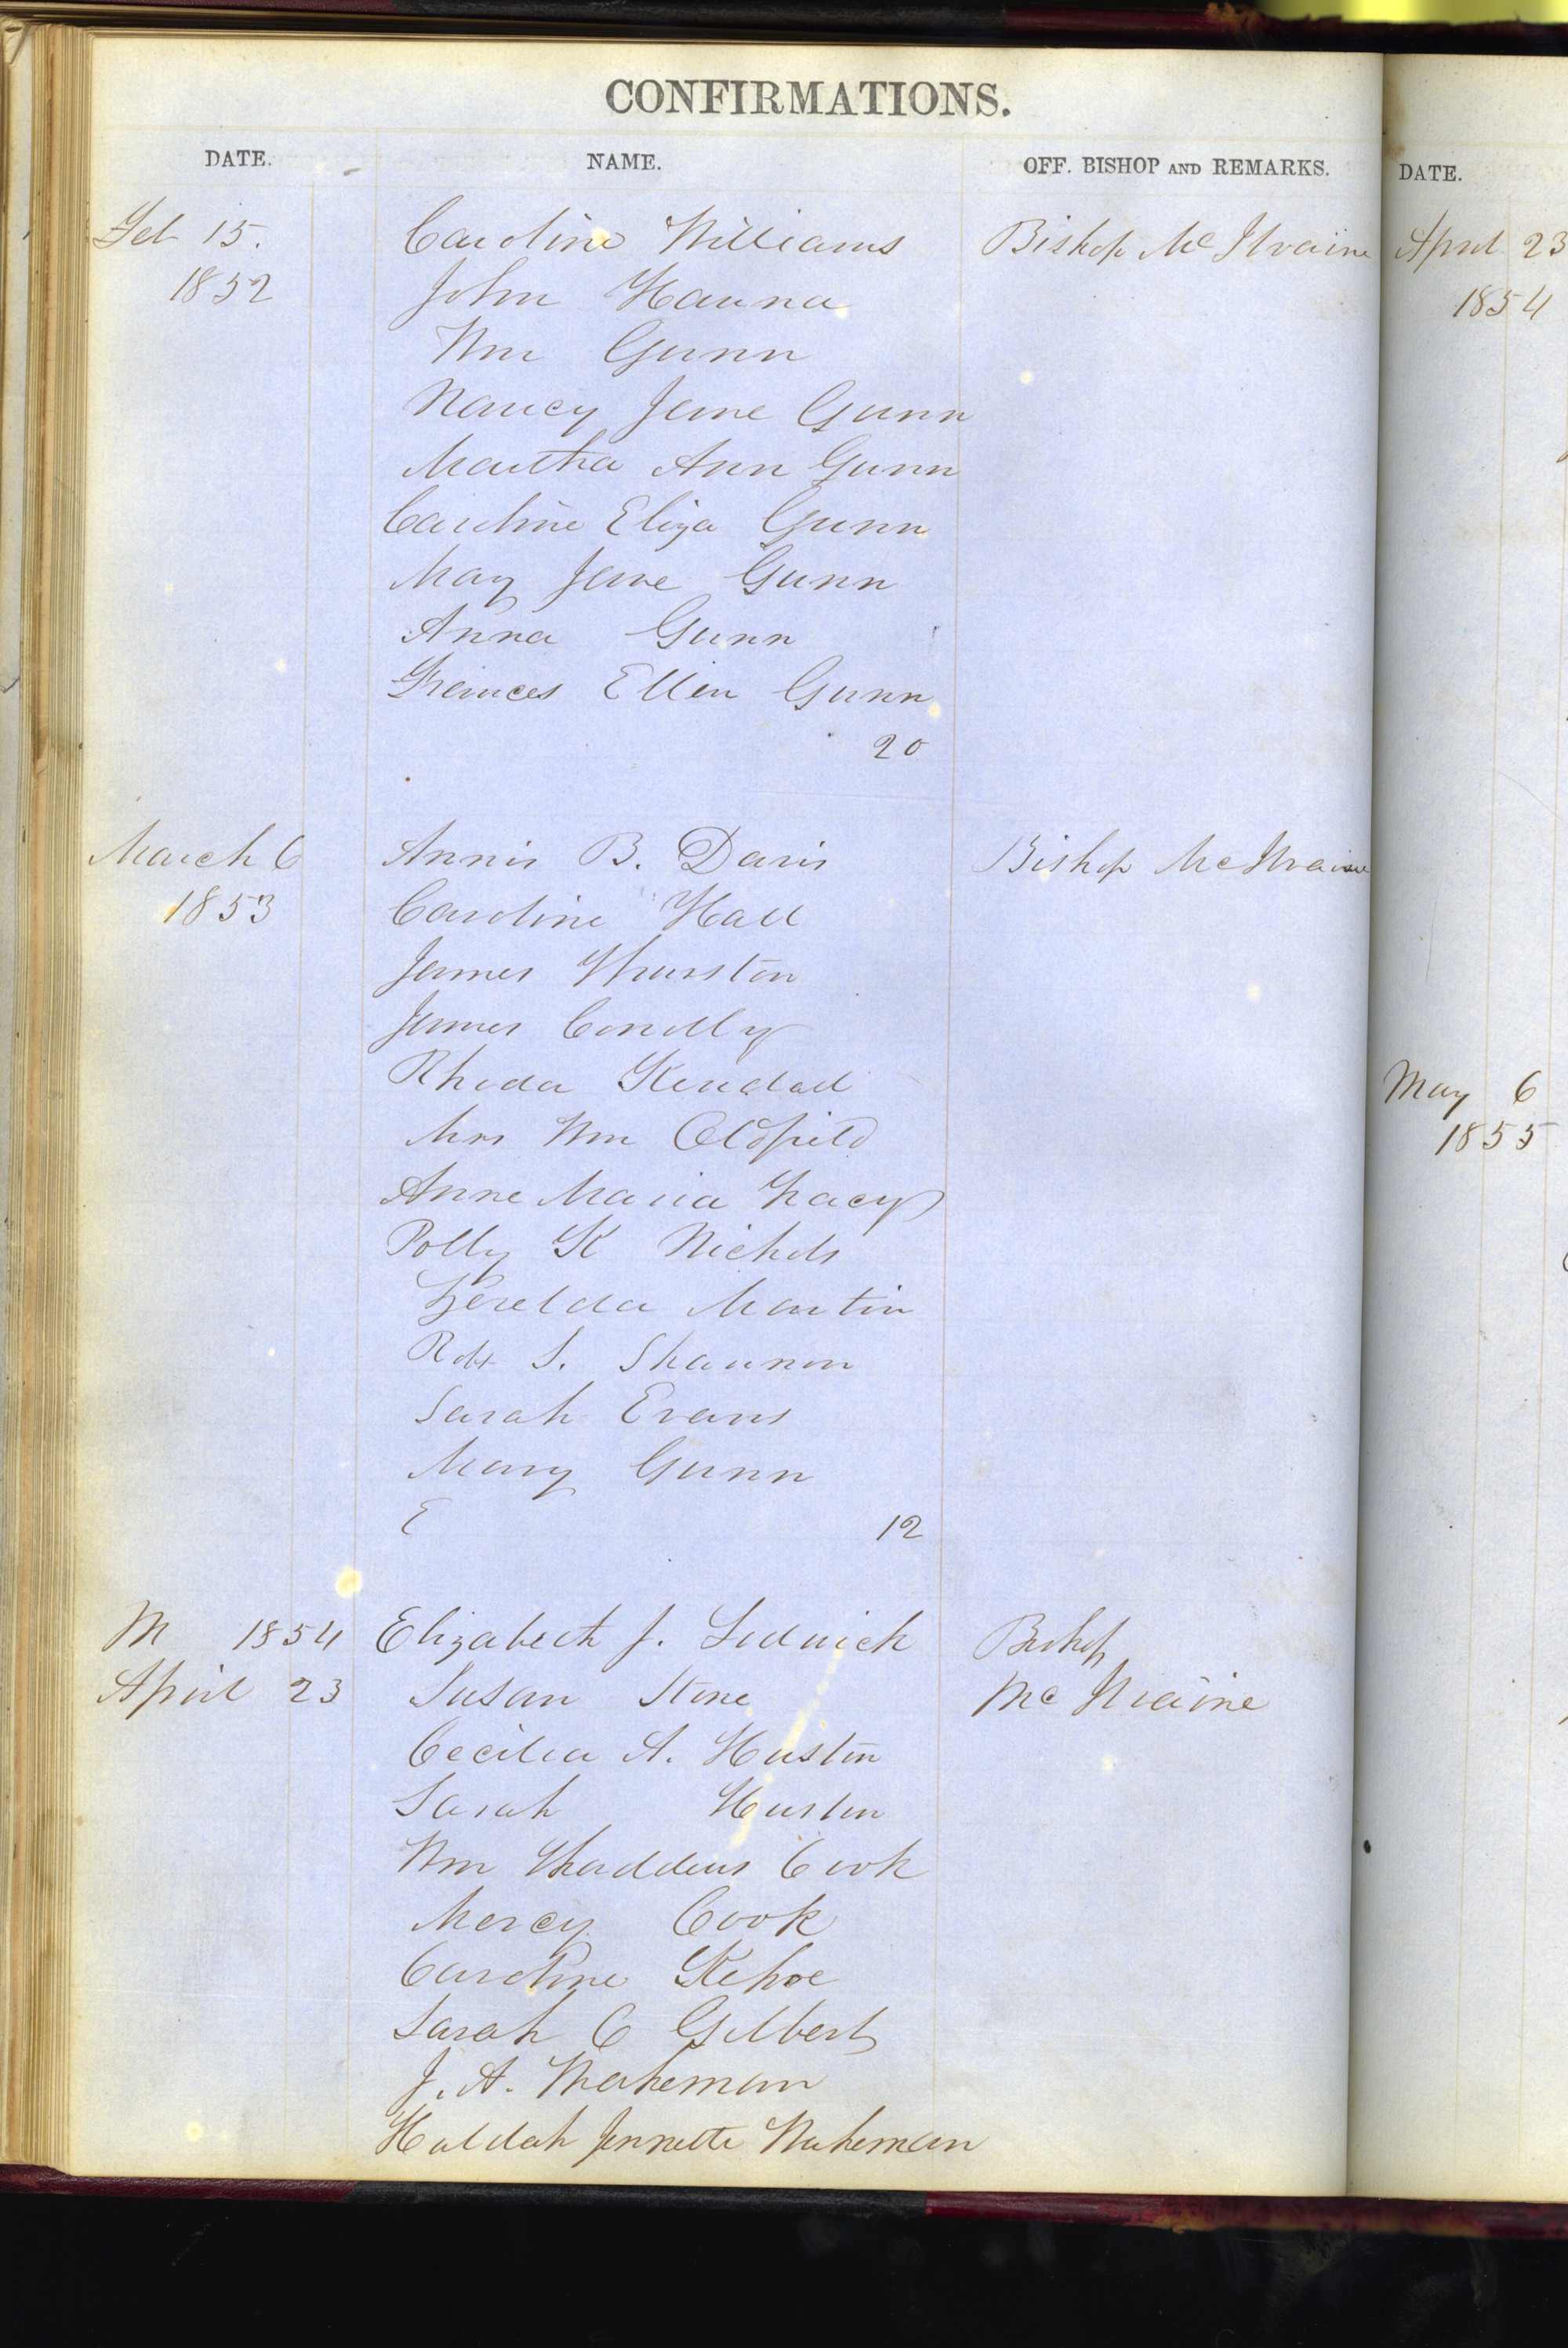 CONFIRMATIONS.
DATE. NAME. OFF. BISHOP AND REMARKS. DATE.
Feb 15. Caroline Williams Bishop McIlvaine April 23
1852 John Hanna 1854
Wm Gunn
Nancy Jane Gunn
Martha Ann Gunn
Caroline Eliza Gunn
Mary Jane Gunn
Anna Gunn
Frances Ellen Gunn
20
March 6 Annis B. Davis Bishop McIlvaine
1853 Caroline Hall
James Thurston
James Conolly
Rhoda Kendall May 6
Mrs Wm Oldfield 1855
Anne Maria Tracy
Polly K Nichols
Zerelda Martin
Robt S. Shannon
Sarah Evans
Mary Gunn
E 12
M 1854 Elizabeth J. Sedwick Bishop
April 23 Susan Stone McIlvaine
Cecilia A. Huston
Sarah Huston
Wm Thaddeus Cook
Mercy Cook
Caroline Kehoe
Sarah C Gilbert
J. A. Wakeman
Huldah Jennette Wakeman